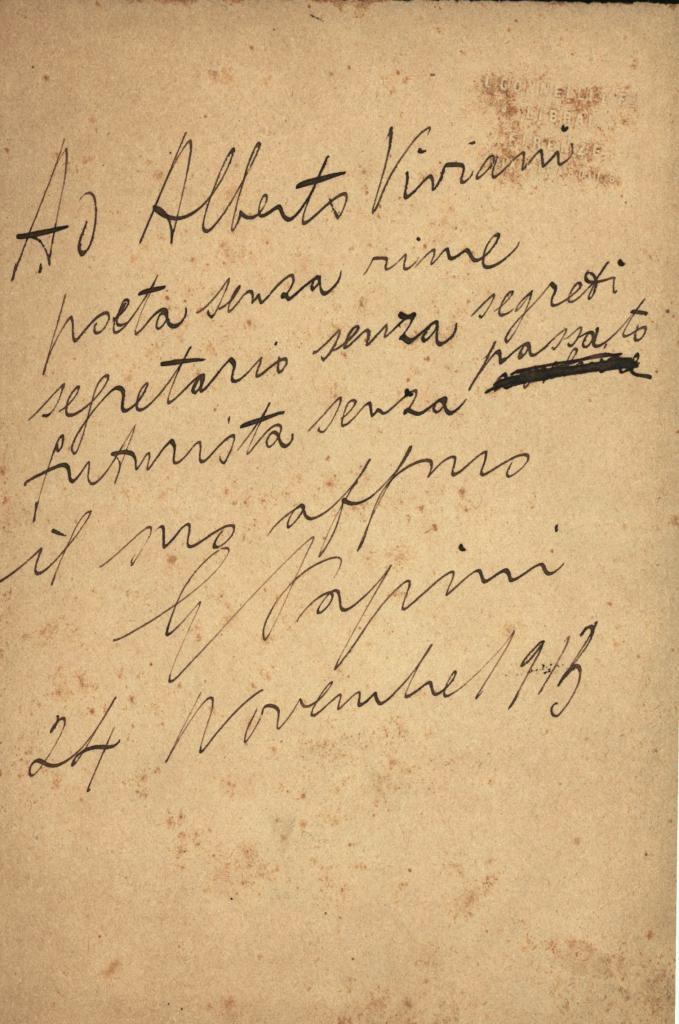 Ad Alberto Viviani
poeta senza rime
segretario senza segreti
futurista senza passato
il suo affmo
G Papini
24 Novembre 1913